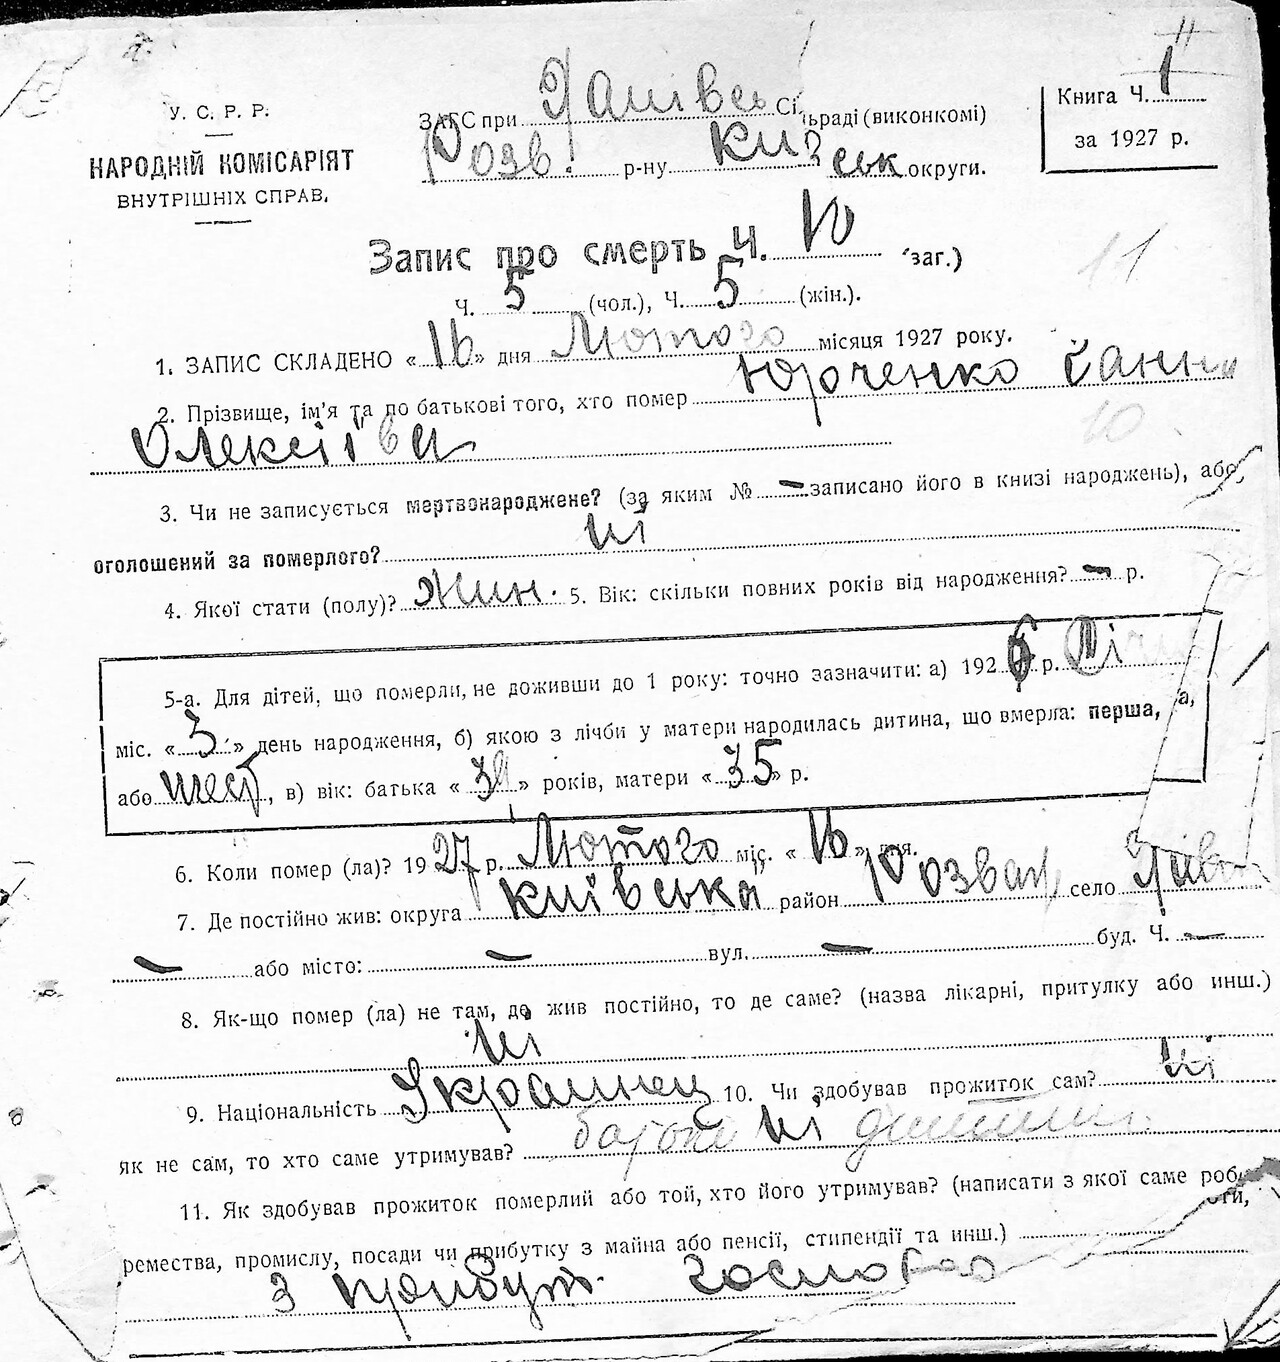 У. С. Р. Р.
НАРОДНІЙ КОМІСАРІЯТ
ВНУТРІШНІХ СПРАВ.
ЗАГС при Сільраді (виконкомі)
Розв. р-ну Київськ округи.
Книга Ч. 1
за 1927 р.
Запис про смерть Ч. 10 (заг.)
11
Ч. 5 (чол.), Ч. 5 (жін.).
1. ЗАПИС СКЛАДЕНО « 16 » дня Лютого місяця 1927 року.
2. Прізвище, ім'я та по батькові того, хто помер Юрченко Ганни
Олексіївни
10
3. Чи не записується мертвонароджене? (за яким № – записано його в книзі народжень), або
оголошений за померлого? ні
4. Якої стати (полу)? жин. 5. Вік: скільки повних років від народження? – р.
5-а. Для дітей, що померли, не доживши до 1 року: точно зазначити: а) 1926 р.
міс. « 3 » день народження, б) якою з лічби у матери народилась дитина, що вмерла: перша,
або шест, в) вік: батька « 39 » років, матери « 35 » р.
6. Коли помер (ла)? 1927 р. Лютого міс. « 16 » дня.
7. Де постійно жив: округа Київська район Розваж село
– або місто: – вул. – буд. Ч. –
8. Як-що помер (ла) не там, де жив постійно, то де саме? (назва лікарні, притулку або инш.)
ні
9. Національність Украинец 10. Чи здобував прожиток сам? ні
як не сам, то хто саме утримував? ні
11. Як здобував прожиток померлий або той, хто його утримував? (написати з якої саме роботи,
ремества, промислу, посади чи прибутку з майна або пенсії, стипендії та инш.)
З прибут.